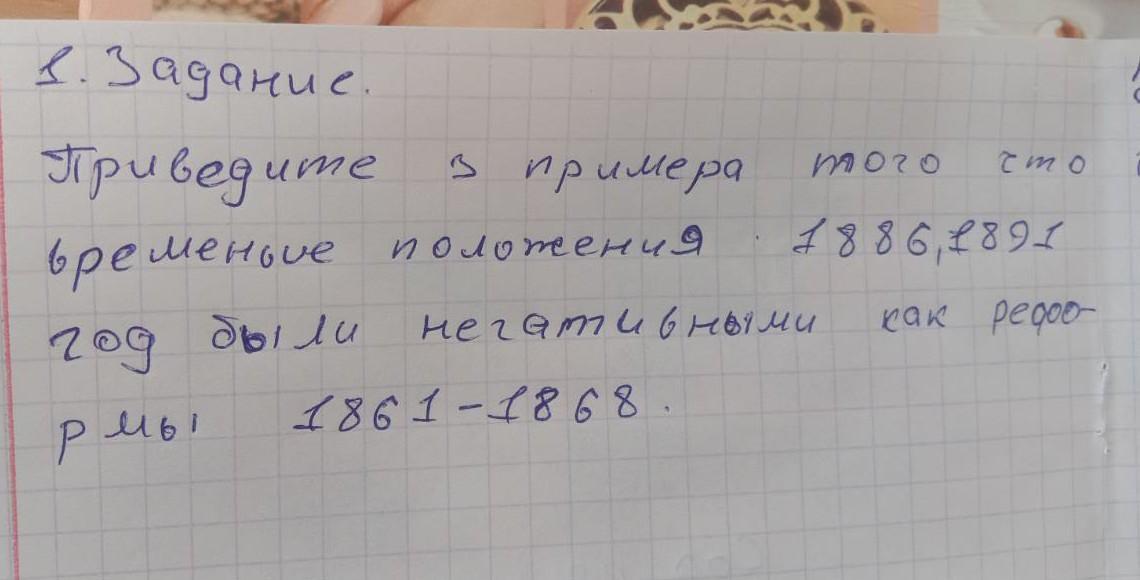 1. Задание.
Приведите 3 примера того что
временые положения 1886,1891
год были негативными как рефо-
рмы 1861-1868.